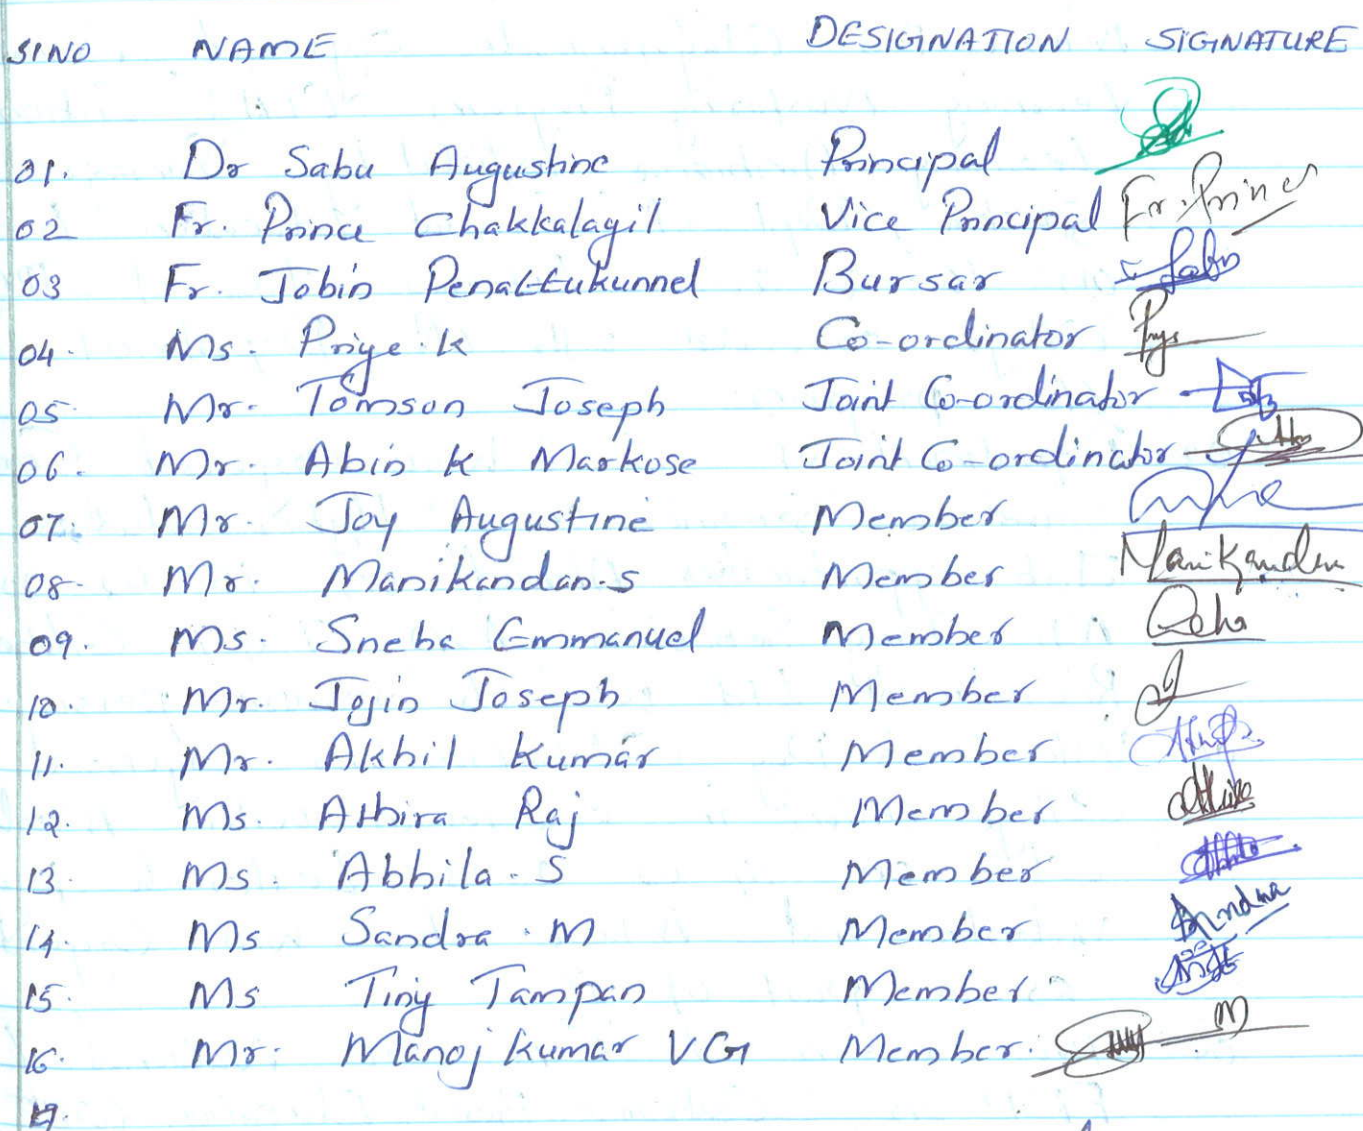 SINO NAME DESIGNATION SIGNATURE
01. Dr Sabu Augustine Principal
02 Fr. Prince Chakkalagil Vice Principal Fr. Prince
03 Fr. Jobin Penattukunnel Bursar
04. Ms. Priye.K Co-ordinator Priya
05 Mr. Tomson Joseph Joint Co-ordinator
06. Mr. Abin K Markose Joint Co-ordinator
07. Mr. Joy Augustine Member
08. Mr. Manikandan.S Member Manikandan
09. Ms. Sneha Emmanuel Member
10. Mr. Jojin Joseph Member
11. Mr. Akhil Kumar Member
12. Ms. Athira Raj Member
13. Ms. Abhila.S Member
14. Ms Sandra.M Member
15. Ms Tiny Tampan Member
16. Mr. Manoj Kumar VG Member.
17.